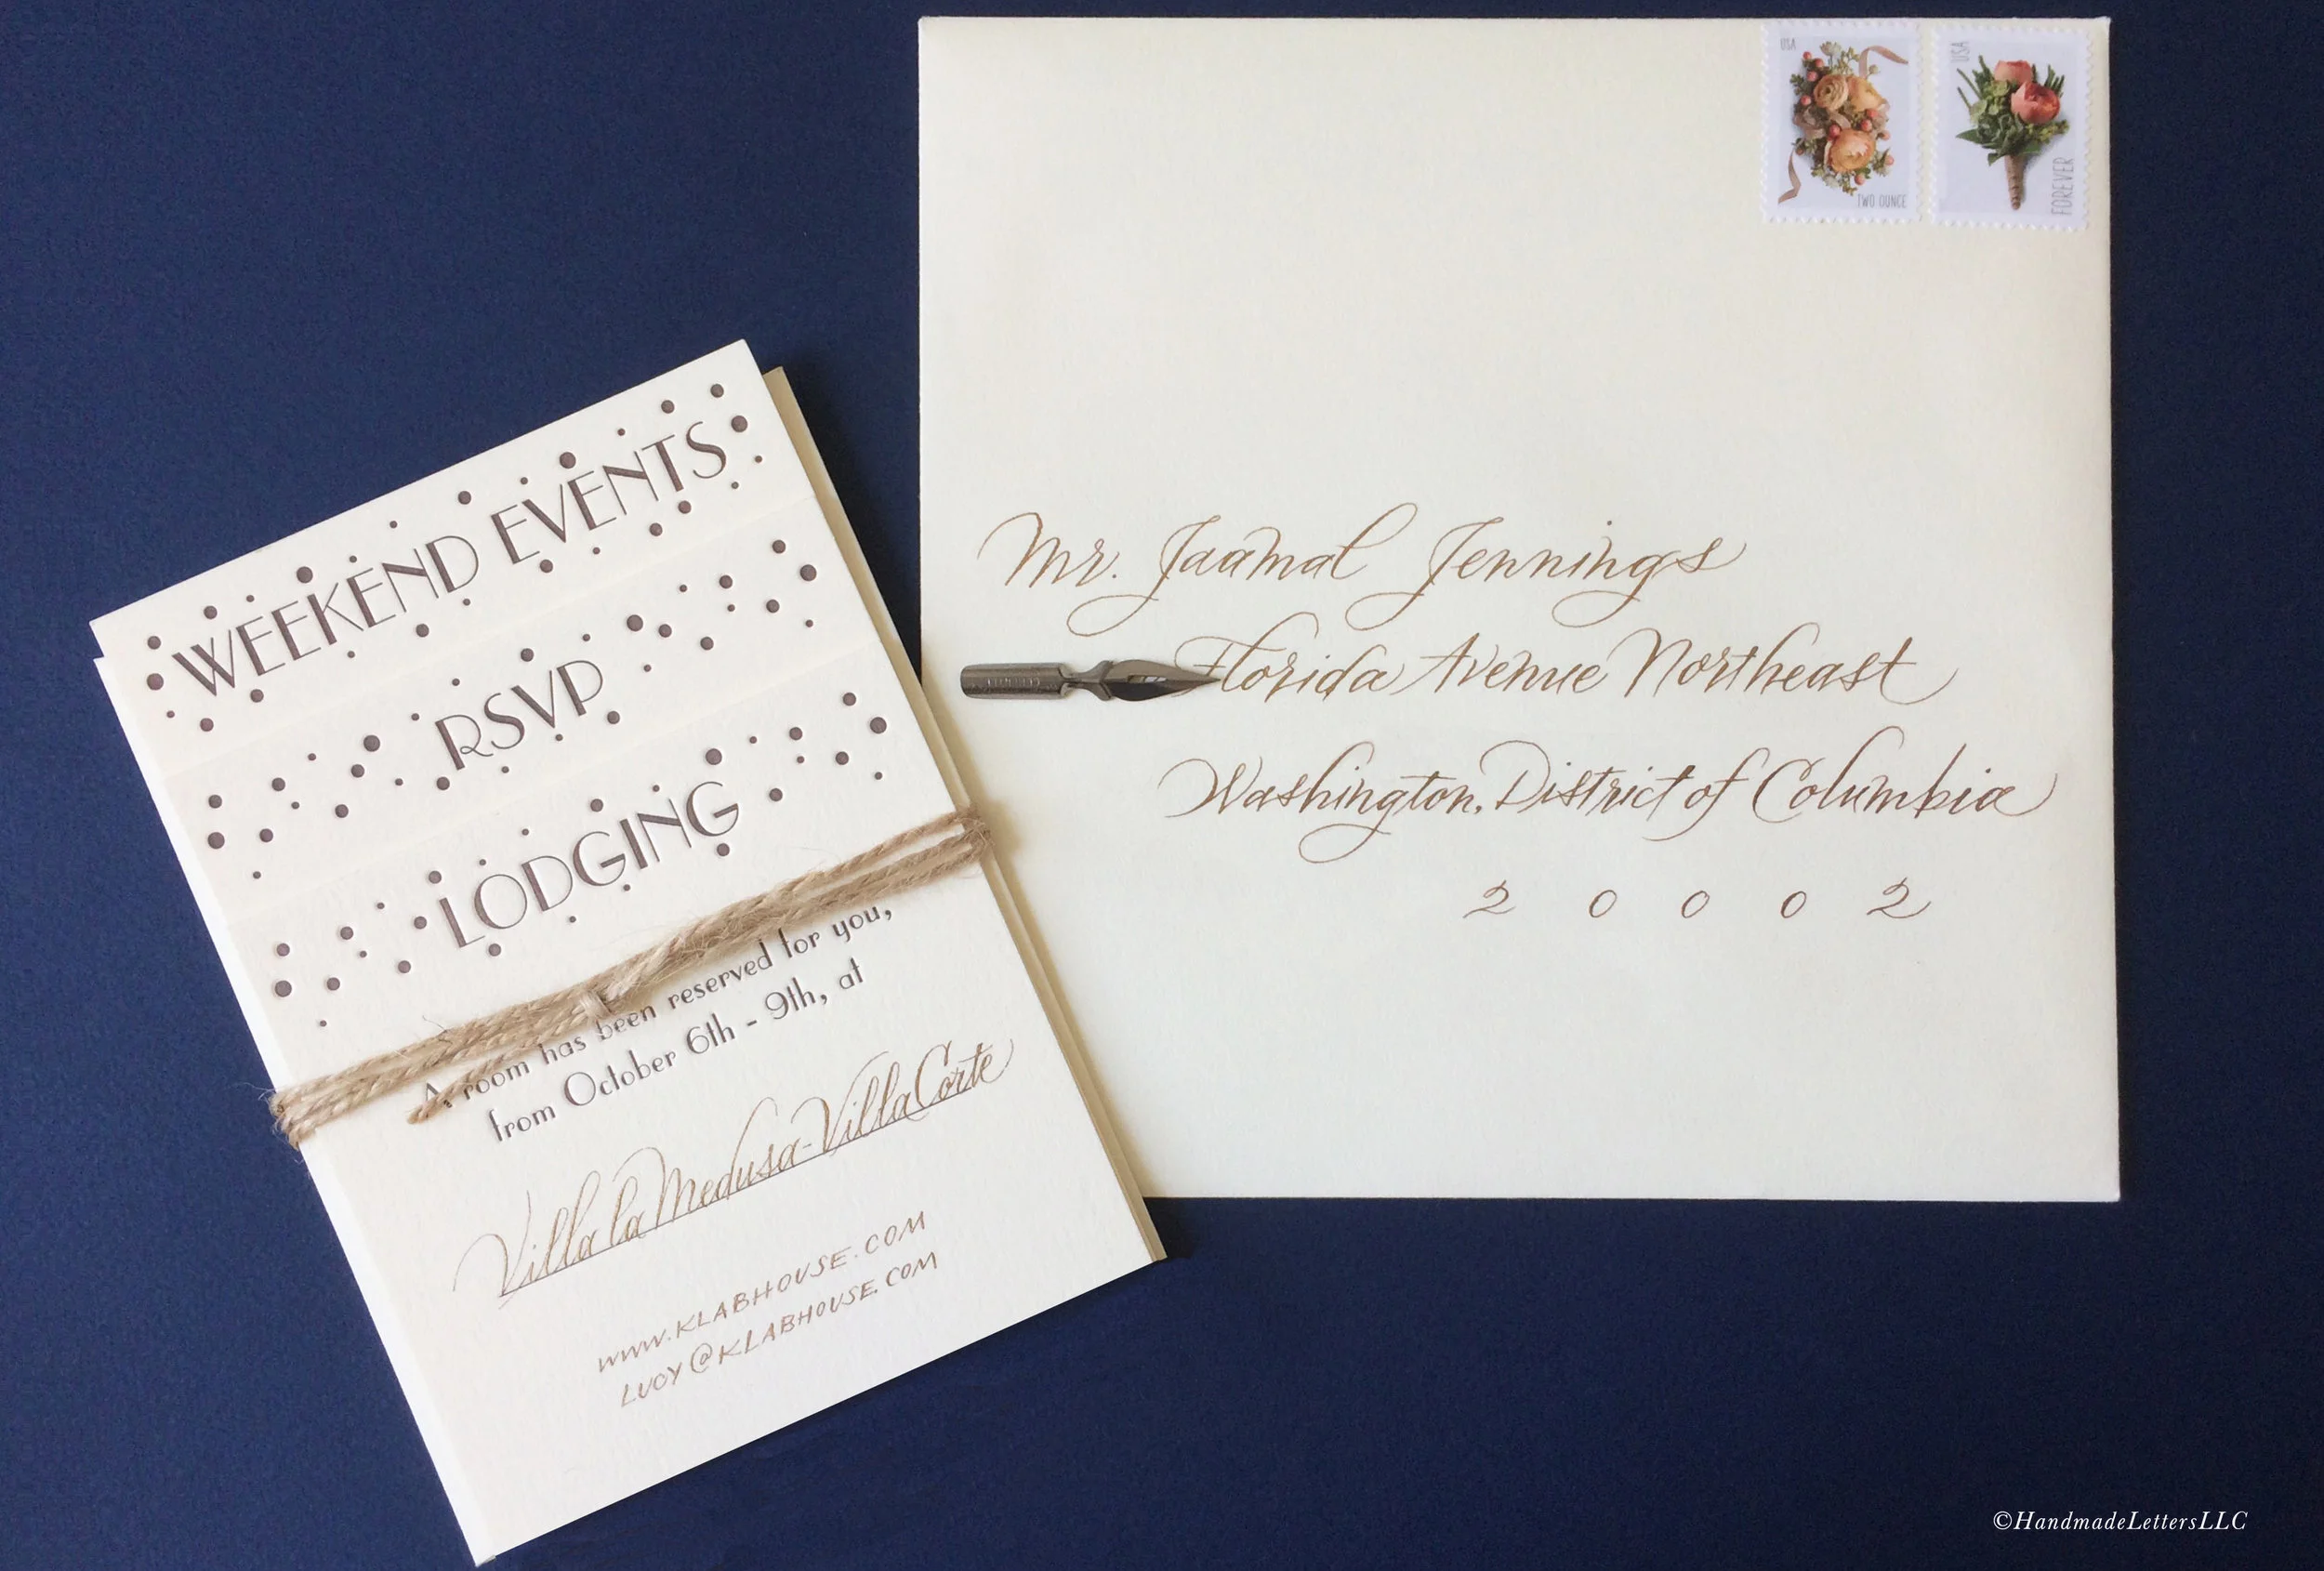 WEEKEND EVENTS
RSVP
LODGING
A room has been reserved for you,
from October 6th - 9th, at
Villa la Medusa-Villa Corte
WWW.KLABHOUSE.COM
LUCY@KLABHOUSE.COM
USA
TWO OUNCE
USA
FOREVER
Mr. Jaamal Jennings
Florida Avenue Northeast
Washington, District of Columbia
2 0 0 0 2
©HandmadeLettersLLC